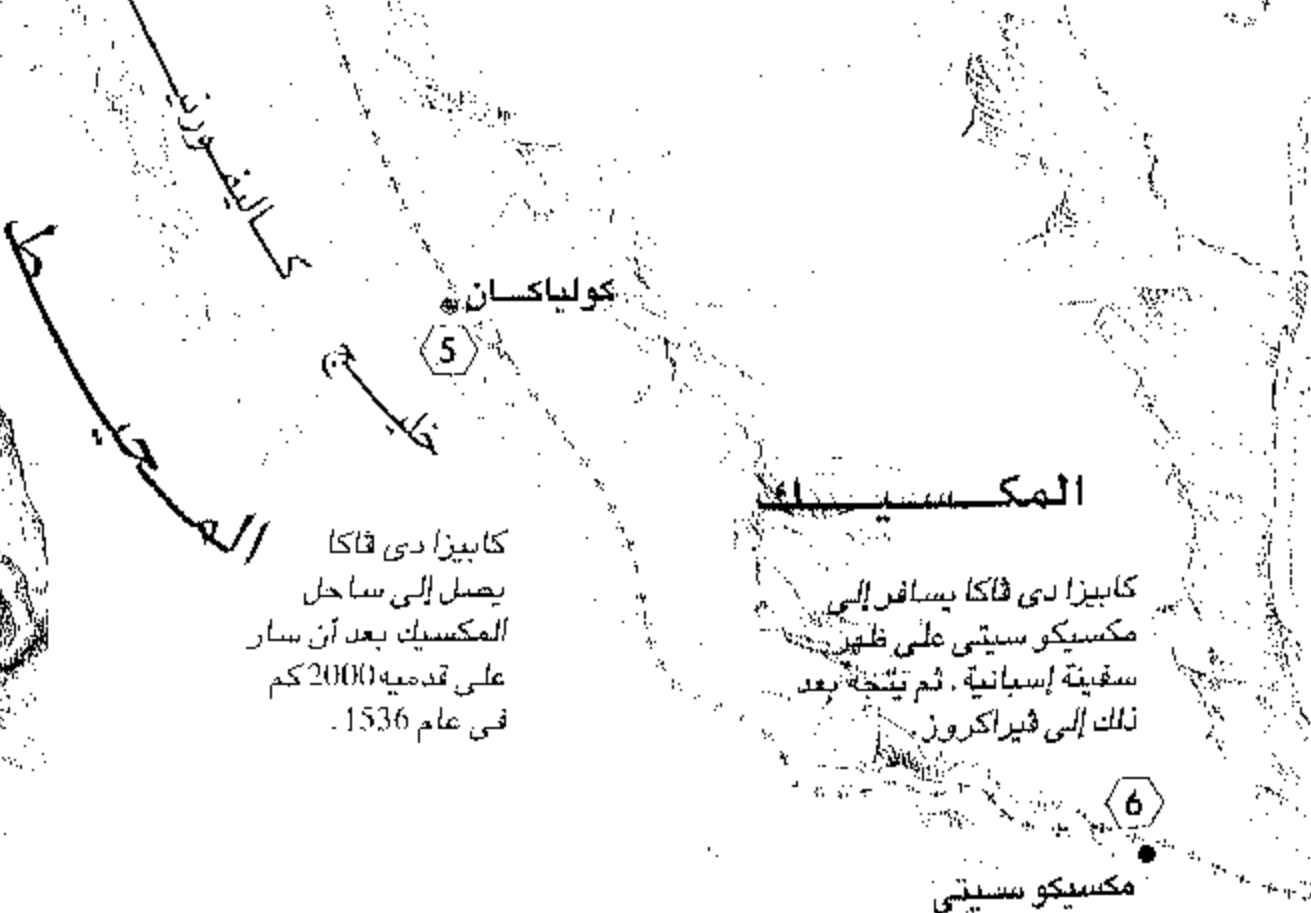 كاليفورنيا
كولياكسان
5
خليج
المحيط
المكسيك
كابيزا دى ڤاكا
يصل إلى ساحل
المكسيك بعد أن سار
على قدميه 2000 كم
فى عام 1536.
كابيزا دى ڤاكا يسافر إلى
مكسيكو سيتى على ظهر
سفينة إسبانية. ثم يتجه بعد
ذلك إلى ڤيراكروز.
6
مكسيكو سيتى